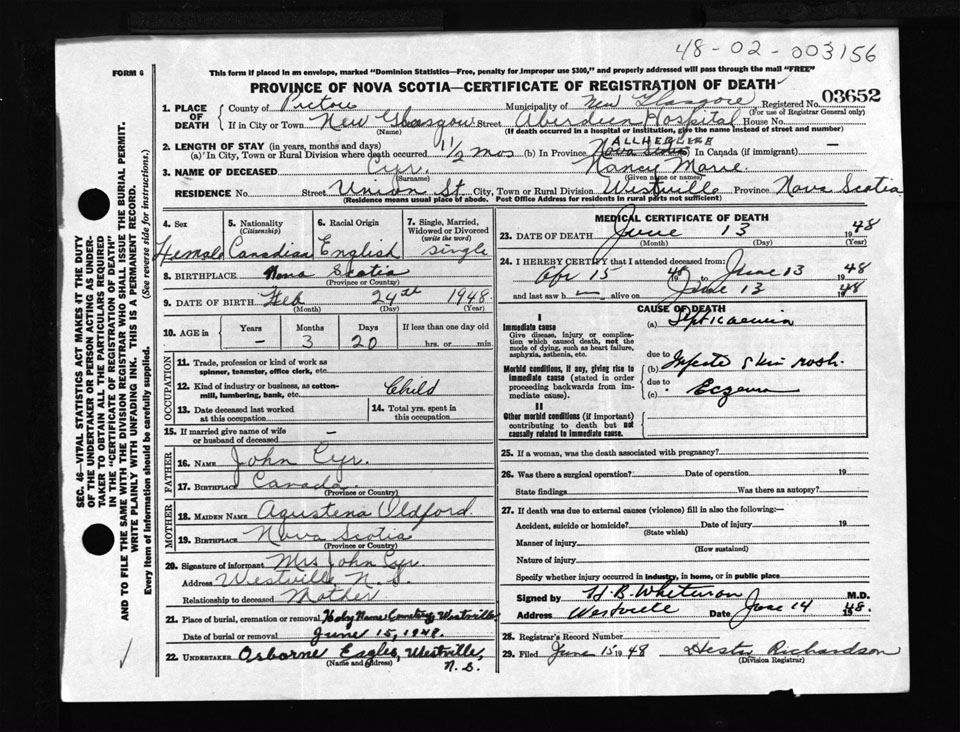 48-02-003156
FORM 6
This form if placed in an envelope, marked "Dominion Statistics—Free, penalty for improper use $300," and properly addressed will pass through the mail "FREE"
PROVINCE OF NOVA SCOTIA—CERTIFICATE OF REGISTRATION OF DEATH
1. PLACE OF DEATH County of Pictou Municipality of New Glasgow Registered No. 03652
(For use of Registrar General only)
If in City or Town New Glasgow Street Aberdeen Hospital House No.
(Name) (If death occurred in a hospital or institution, give the name instead of street and number)
2. LENGTH OF STAY (in years, months and days) ALL HER LIFE
(a) In City, Town or Rural Division where death occurred 1½ mos (b) In Province Nova Scotia In Canada (if immigrant) —
3. NAME OF DECEASED Cyr. Nancy Marie.
(Surname) (Given name or names)
RESIDENCE No. Street Union St City, Town or Rural Division Westville Province Nova Scotia
(Residence means usual place of abode. Post Office Address for residents in rural parts not sufficient)
4. Sex Female
5. Nationality (Citizenship) Canadian
6. Racial Origin English
7. Single, Married, Widowed or Divorced (write the word) single
8. BIRTHPLACE Nova Scotia
(Province or Country)
9. DATE OF BIRTH Feb 24th 1948
(Month) (Day) (Year)
10. AGE in Years Months Days If less than one day old
— 3 20 hrs. or min.
OCCUPATION
11. Trade, profession or kind of work as spinner, teamster, office clerk, etc.
12. Kind of industry or business, as cotton-mill, lumbering, bank, etc. Child
13. Date deceased last worked at this occupation
14. Total yrs. spent in this occupation
15. If married give name of wife or husband of deceased —
FATHER
16. NAME John Cyr.
17. BIRTHPLACE Canada
(Province or Country)
MOTHER
18. MAIDEN NAME Agustena Oldford.
19. BIRTHPLACE Nova Scotia
(Province or Country)
20. Signature of informant Mrs John Cyr.
Address Westville N. S.
Relationship to deceased Mother
21. Place of burial, cremation or removal Holy Name Cemetery Westville
Date of burial or removal June 15, 1948.
22. UNDERTAKER Osborne Eagles, Westville, N.S.
(Name and address)
MEDICAL CERTIFICATE OF DEATH
23. DATE OF DEATH June 13 1948
(Month) (Day) (Year)
24. I HEREBY CERTIFY that I attended deceased from:
Apr 15 1948 to June 13 1948
and last saw h — alive on June 13 1948
CAUSE OF DEATH
I
Immediate cause
Give disease, injury or complication which caused death, not the mode of dying, such as heart failure, asphyxia, asthenia, etc.
(a) Septicaemia
due to
Infected skin rash.
Morbid conditions, if any, giving rise to immediate cause (stated in order proceeding backwards from immediate cause).
due to
(c) Eczema
II
Other morbid conditions (if important) contributing to death but not causally related to immediate cause.
25. If a woman, was the death associated with pregnancy?
26. Was there a surgical operation? Date of operation 19
State findings Was there an autopsy?
27. If death was due to external causes (violence) fill in also the following:—
Accident, suicide or homicide? Date of injury 19
(State which)
Manner of injury
(How sustained)
Nature of injury
Specify whether injury occurred in industry, in home, or in public place
Signed by H. B. Whitman M.D.
Address Westville Date June 14 1948.
28. Registrar's Record Number
29. Filed June 15 1948 Hester Richardson
(Division Registrar)
SEC. 46—VITAL STATISTICS ACT MAKES IT THE DUTY
OF THE UNDERTAKER OR PERSON ACTING AS UNDERTAKER
TO OBTAIN ALL THE PARTICULARS REQUIRED
IN THE "CERTIFICATE OF REGISTRATION OF DEATH"
AND TO FILE THE SAME WITH THE DIVISION REGISTRAR WHO SHALL ISSUE THE BURIAL PERMIT.
WRITE PLAINLY WITH UNFADING INK. THIS IS A PERMANENT RECORD.
Every item of information should be carefully supplied. (See reverse side for instructions.)